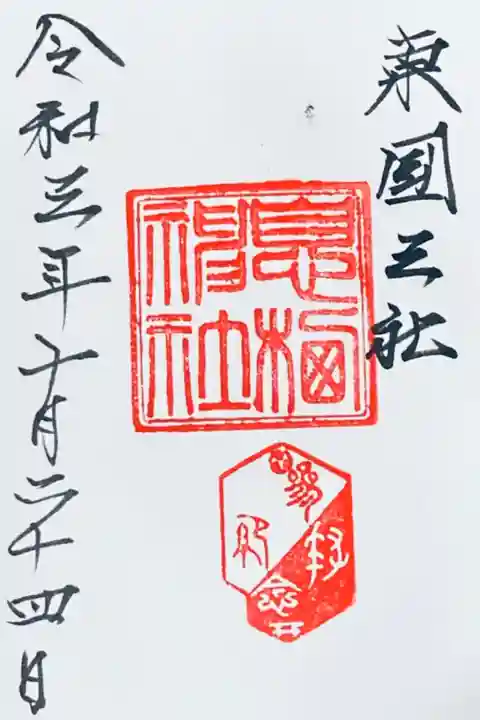 東國三社
息栖
神社
令和三年十月二十四日